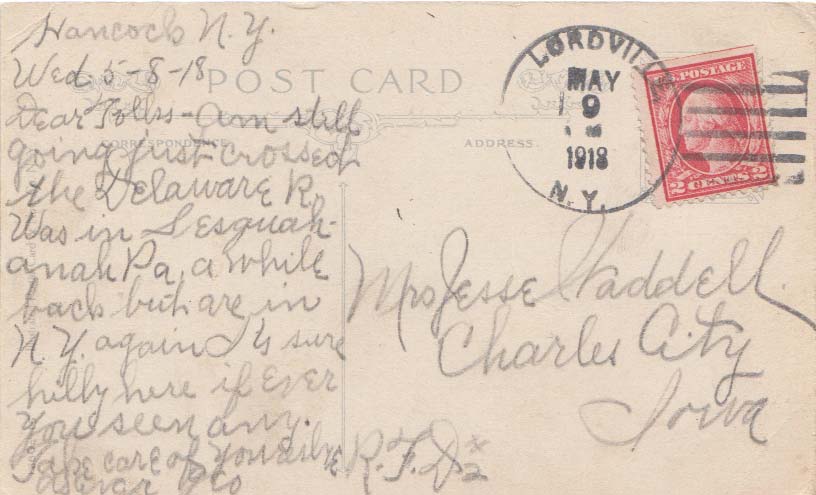 Hancock N.Y.
Wed. 5-8-18
POST CARD
Dear Folks - Am still
going just crossed
the Delaware R.
Was in Sesquah-
anah Pa, a while
back but are in
N.Y. again Is sure
hilly here if ever
you seen any.
Take care of yourselves
CORRESPONDENCE
ADDRESS.
LORDVILLE
MAY
9
1918
N.Y.
U.S. POSTAGE
2 CENTS 2
Mrs Jesse Waddell.
Charles City
Iowa
R.F.D. 2